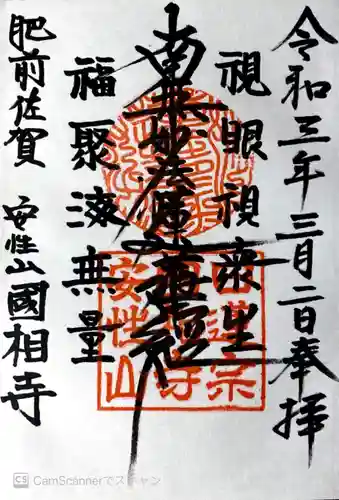 令和三年三月二日奉拝
視眼視衆生
南無妙法蓮華経
福聚海無量
肥前佐賀 安性山國相寺
日蓮宗
安性山
CS CamScannerでスキャン